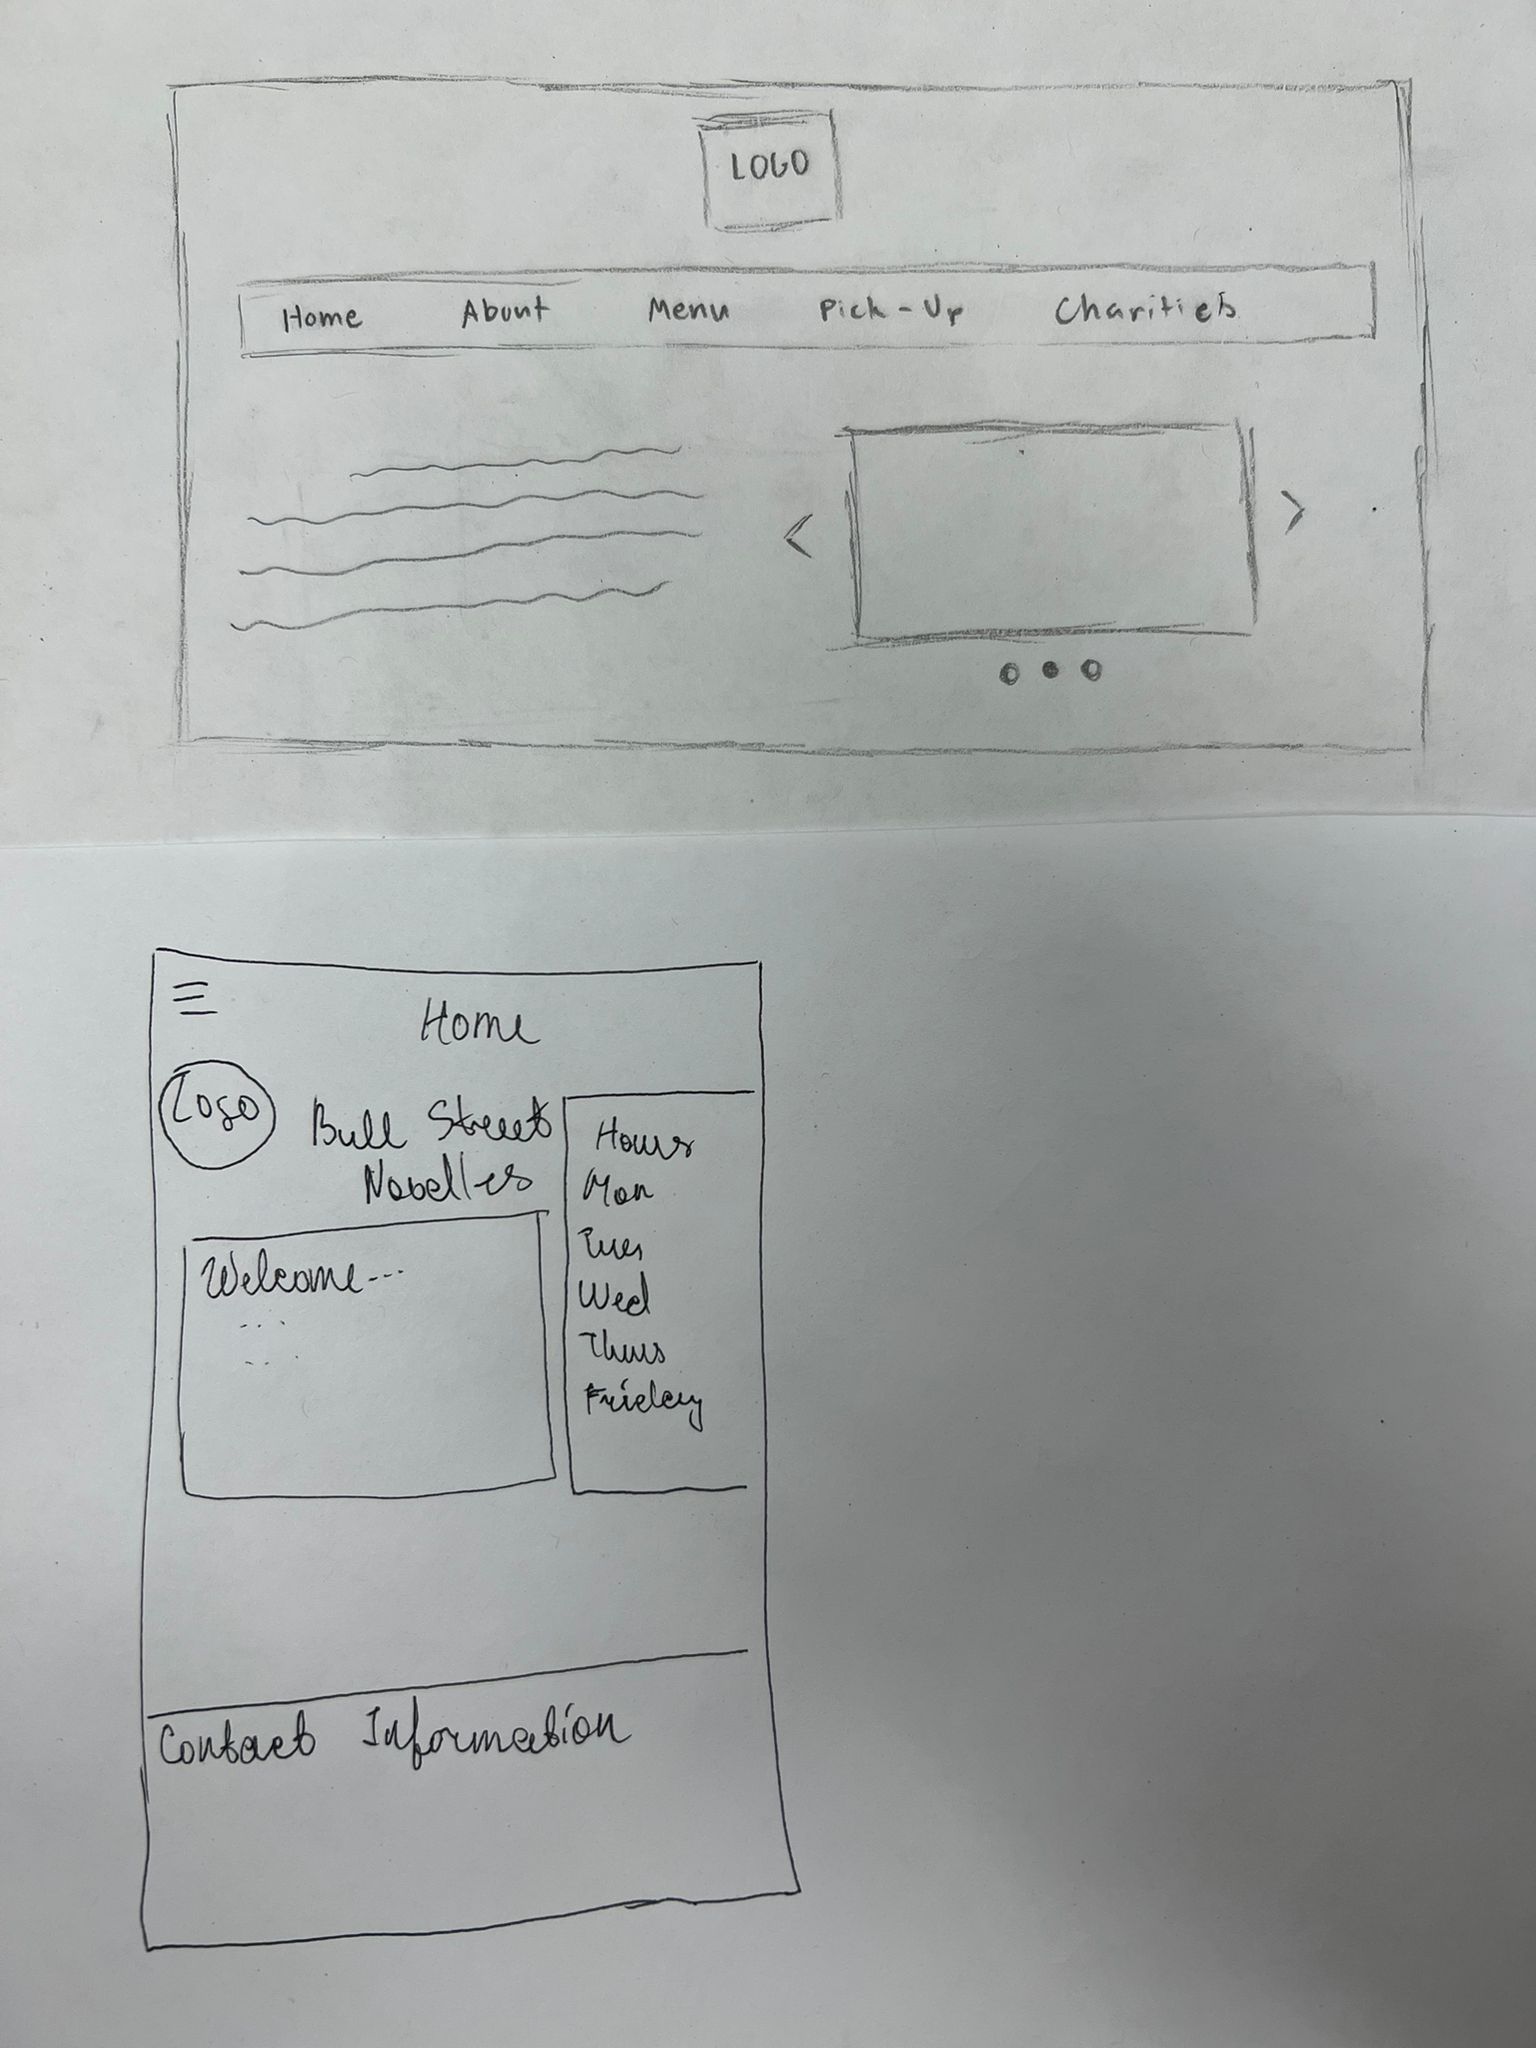 LOGO
Home About Menu Pick-Up Charities
Home
Logo
Bull Street
Noodles
Hours
Mon
Tues
Wed
Thurs
Friday
Welcome...
Contact Information